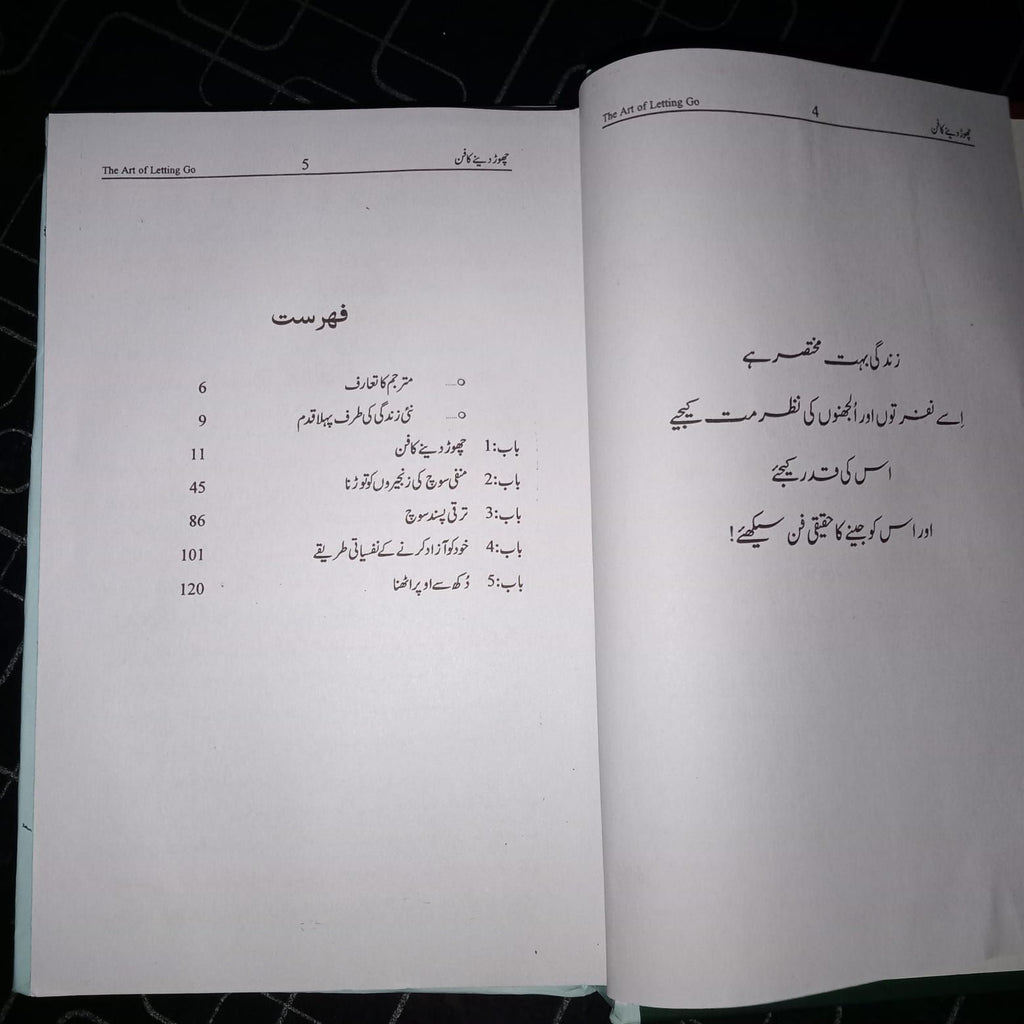 The Art of Letting Go 4 چھوڑ دینے کا فن
زندگی بہت مختصر ہے
اِسے نفرتوں اور اُلجھنوں کی نظر مت کیجیے
اس کی قدر کیجئے
اور اس کو جینے کا حقیقی فن سیکھئے!
The Art of Letting Go 5 چھوڑ دینے کا فن
فہرست
o---- مترجم کا تعارف 6
o---- نئی زندگی کی طرف پہلا قدم 9
باب:1 چھوڑ دینے کا فن 11
باب:2 منفی سوچ کی زنجیروں کو توڑنا 45
باب:3 ترقی پسند سوچ 86
باب:4 خود کو آزاد کرنے کے نفسیاتی طریقے 101
باب:5 دُکھ سے اوپر اٹھنا 120